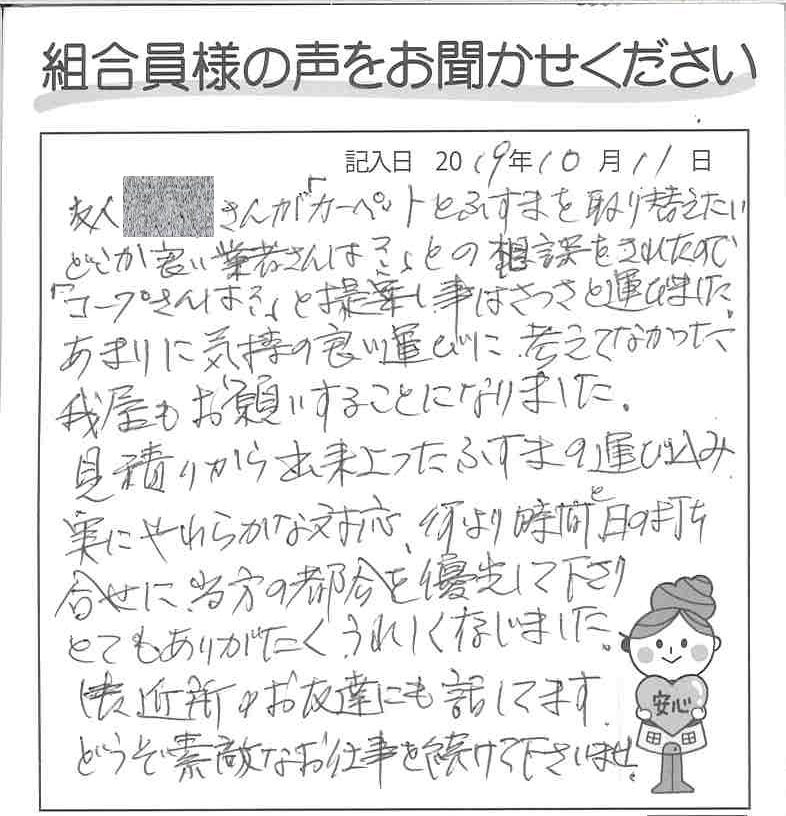 組合員様の声をお聞かせください
記入日 2019年10月11日
友人 さんが「カーペットとふすまを取り替えたい
どこか良い業者さんは?」との相談をされたので
「コープさんは?」と提案し事はさっさと運びました。
あまりに気持の良い運びに、考えてなかった
我屋もお願いすることになりました。
見積りから出来上ったふすまの運び込み
実にやわらかな対応、何より時間と日の打ち
合せに、当方の都合を優先して下さり
とてもありがたくうれしくなじました。
近所やお友達にも話してます。
どうぞ素敵なお仕事を続けて下さいませ。
安心